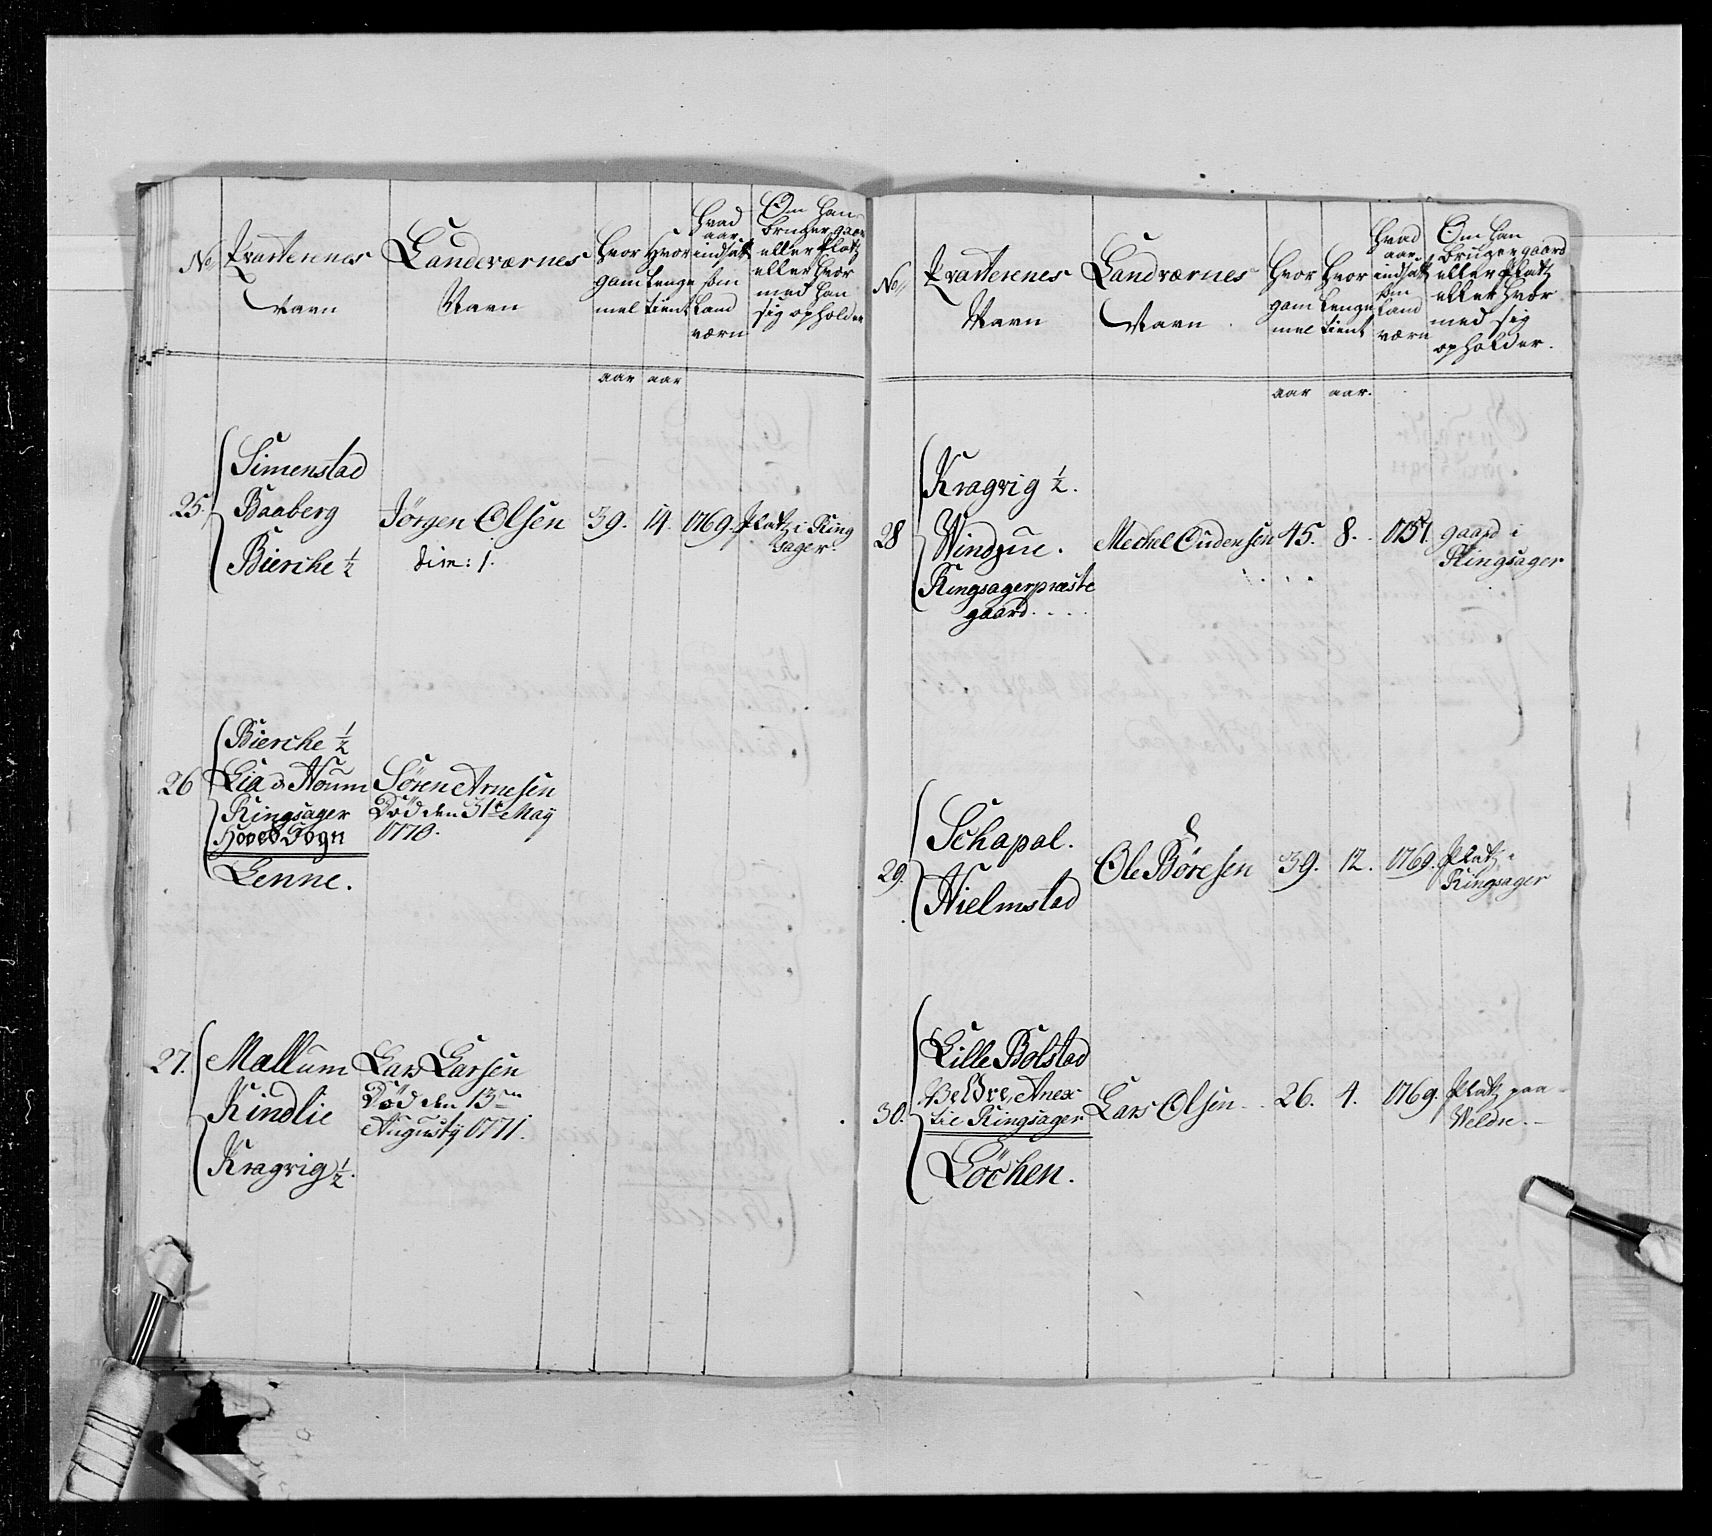 No Qvarterenes Navn
Landeværnes Navn
Hvor gammel
Hvor lenge tient
Hvad aar indsat som Land værn
Om han bruger gaard eller Platz eller hvor med han sig opholder
aar aar
25. Simenstad
Baaberg
Bierche 1/2
Jørgen Olsen 39. 14. 1769. Platz i Ring
sager
dim: 1.
26 Bierche 1/2
Lia & Houm
Ringsager
Hoved Sogn
Lenne.
Søren Arnesen
Død den 31te May
1770.
27. Mællum
Kindlie
Kragvig 1/2.
Lars Larsen
Død den 13en
Augusty 1771.
No Qvarterenes Navn
Landværnes Navn.
Hvor gammel
Hvor lenge tient
Hvad aar indsat som Land værn
Om han bruger gaard eller Platz eller hvor med sig opholder.
aar aar.
28 Kragvig 1/2.
Windjue.
Ringsagerpræste
gaard....
Mechel Oudensen 45. 8. 1757. gaard i
Ringsager
29. Schapal.
Hielmstad
Ole Børesen 39. 12. 1769. Platz i
Ringsager
30. Lille Bolstad
Veldre, Anex
til Ringsager
Löchen.
Lars Olsen 26. 4. 1769. Platz paa
Veldre.